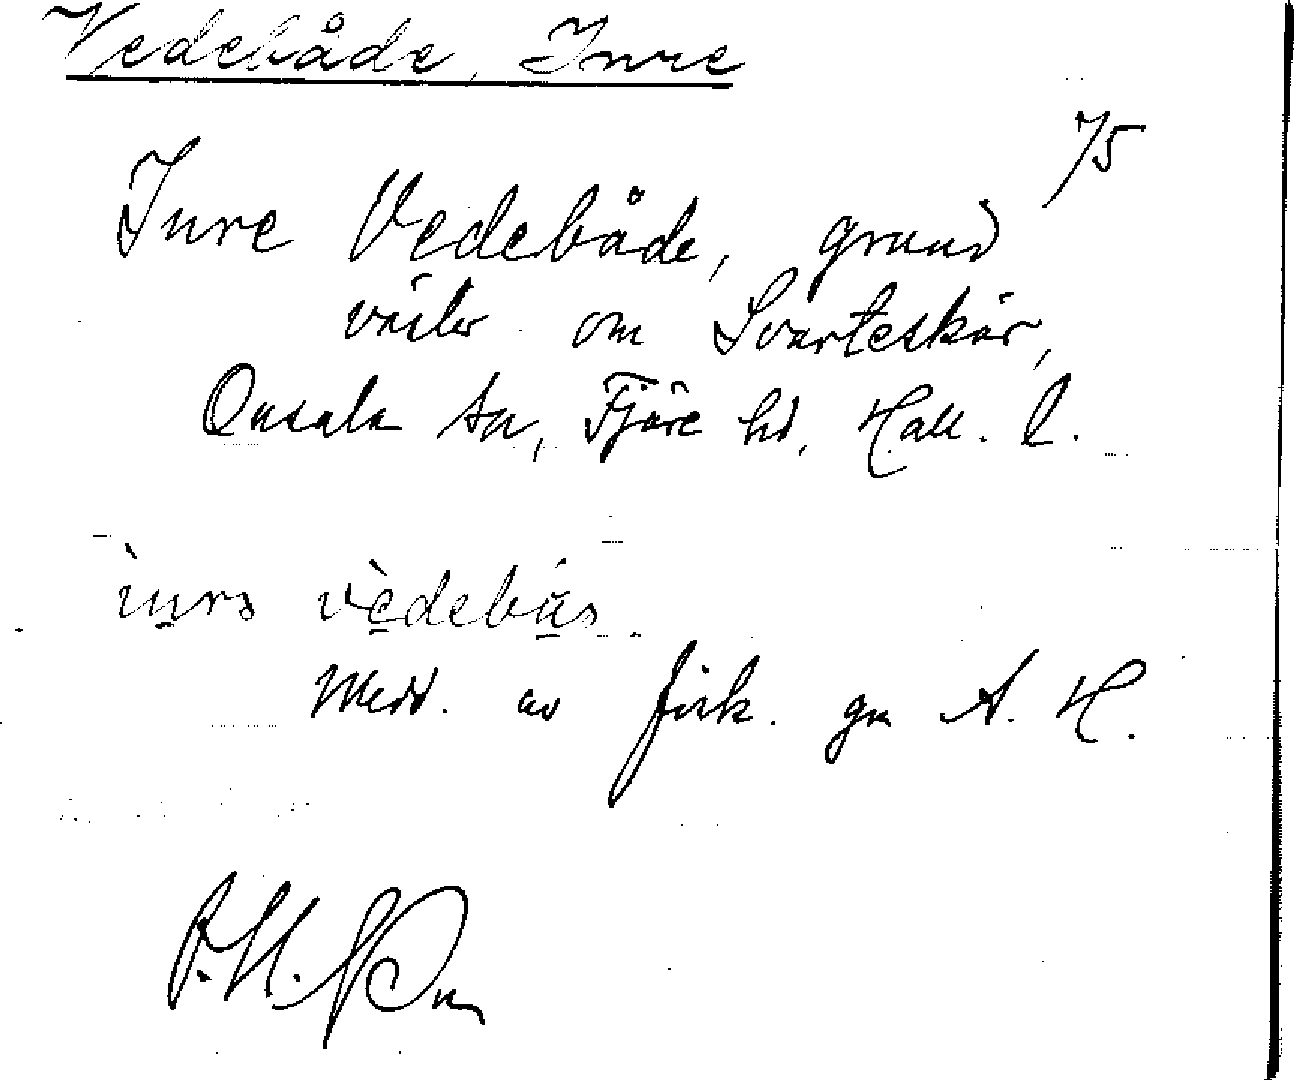 Vedebåde, Inre
75
Inre Vedebåde, grund
väster om Svarteskär,
Onsala sn, Fjäre hd, Hall. l.
Medd. av fisk. gm A. H.